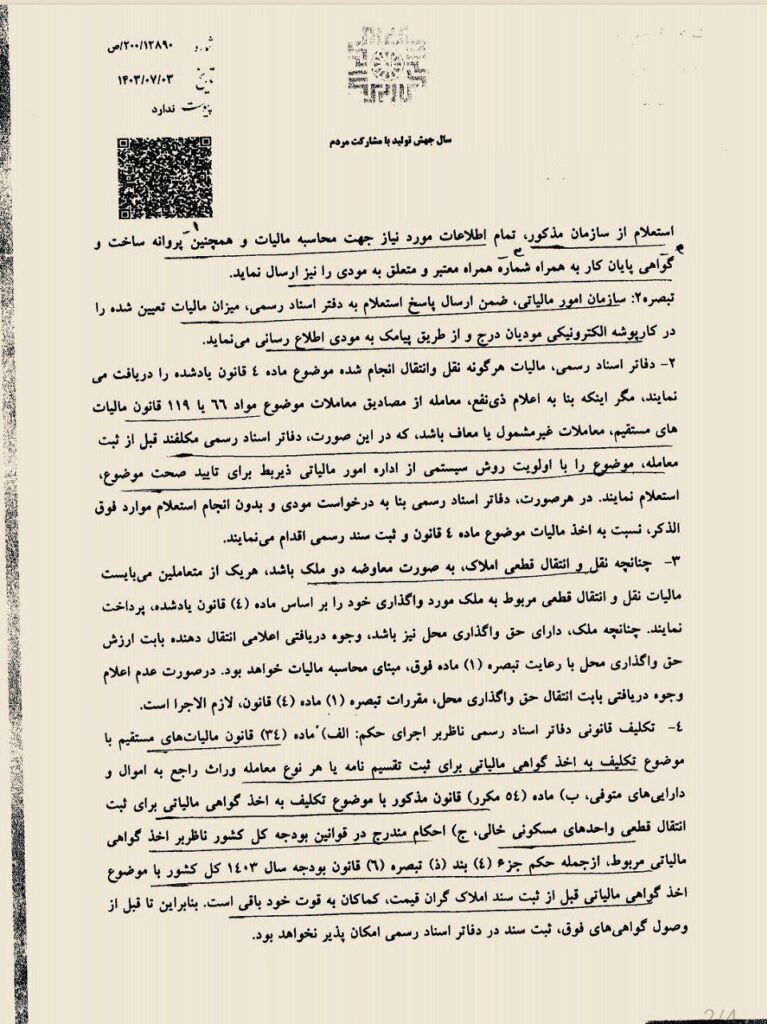 شماره ۲۰۰/۱۲۸۹۰/ص
تاریخ ۱۴۰۳/۰۷/۰۳
پیوست ندارد
سال جهش تولید با مشارکت مردم
استعلام از سازمان مذکور، تمام اطلاعات مورد نیاز جهت محاسبه مالیات و همچنین پروانه ساخت و
گواهی پایان کار به همراه شماره همراه معتبر و متعلق به مودی را نیز ارسال نماید.
تبصره۲: سازمان امور مالیاتی، ضمن ارسال پاسخ استعلام به دفتر اسناد رسمی، میزان مالیات تعیین شده را
در کارپوشه الکترونیکی مودیان درج و از طریق پیامک به مودی اطلاع رسانی می‌نماید.
۲- دفاتر اسناد رسمی، مالیات هرگونه نقل وانتقال انجام شده موضوع ماده ۴ قانون یادشده را دریافت می
نمایند، مگر اینکه بنا به اعلام ذی‌نفع، معامله از مصادیق معاملات موضوع مواد ۶۶ یا ۱۱۹ قانون مالیات
های مستقیم، معاملات غیرمشمول یا معاف باشد، که در این صورت، دفاتر اسناد رسمی مکلفند قبل از ثبت
معامله، موضوع را با اولویت روش سیستمی از اداره امور مالیاتی ذیربط برای تایید صحت موضوع،
استعلام نمایند. در هرصورت، دفاتر اسناد رسمی بنا به درخواست مودی و بدون انجام استعلام موارد فوق
الذکر، نسبت به اخذ مالیات موضوع ماده ۴ قانون و ثبت سند رسمی اقدام می‌نمایند.
۳- چنانچه نقل و انتقال قطعی املاک، به صورت معاوضه دو ملک باشد، هریک از متعاملین می‌بایست
مالیات نقل و انتقال قطعی مربوط به ملک مورد واگذاری خود را بر اساس ماده (۴) قانون یادشده، پرداخت
نمایند. چنانچه ملک، دارای حق واگذاری محل نیز باشد، وجوه دریافتی اعلامی انتقال دهنده بابت ارزش
حق واگذاری محل با رعایت تبصره (۱) ماده فوق، مبنای محاسبه مالیات خواهد بود. درصورت عدم اعلام
وجوه دریافتی بابت انتقال حق واگذاری محل، مقررات تبصره (۱) ماده (۴) قانون، لازم الاجرا است.
۴- تکلیف قانونی دفاتر اسناد رسمی ناظربر اجرای حکم: الف) ماده (۳۴) قانون مالیات‌های مستقیم با
موضوع تکلیف به اخذ گواهی مالیاتی برای ثبت تقسیم نامه یا هر نوع معامله وراث راجع به اموال و
دارایی‌های متوفی، ب) ماده (۵۴ مکرر) قانون مذکور با موضوع تکلیف به اخذ گواهی مالیاتی برای ثبت
انتقال قطعی واحدهای مسکونی خالی، ج) احکام مندرج در قوانین بودجه کل کشور ناظربر اخذ گواهی
مالیاتی مربوط، ازجمله حکم جزء (۴) بند (ذ) تبصره (۶) قانون بودجه سال ۱۴۰۳ کل کشور با موضوع
اخذ گواهی مالیاتی قبل از ثبت سند املاک گران قیمت، کماکان به قوت خود باقی است. بنابراین تا قبل از
وصول گواهی‌های فوق، ثبت سند در دفاتر اسناد رسمی امکان پذیر نخواهد بود.
2/4